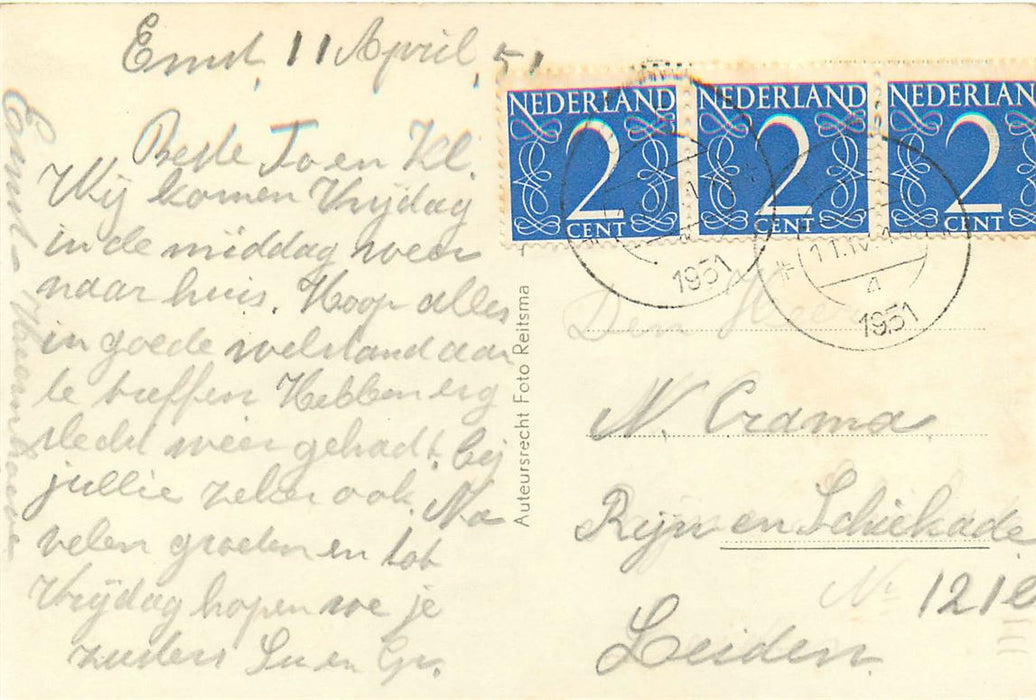 Emst, 11 April, 51
Beste To en Kl.
Wij komen Vrijdag
in de middag weer
naar huis. Hoop alles
in goede welstand aan
te treffen Hebben erg
slecht weer gehadt. bij
jullie zeker ook. Na
velen groeten en tot
Vrijdag hopen we je
zusters Su en Gr.
Auteursrecht Foto Reitsma
NEDERLAND NEDERLAND NEDERLAN
2 2 2
CENT CENT CENT
1951
11.IV
1951
Den Heer
N. Crama
Rijn en Schiekade
No 121
Leiden